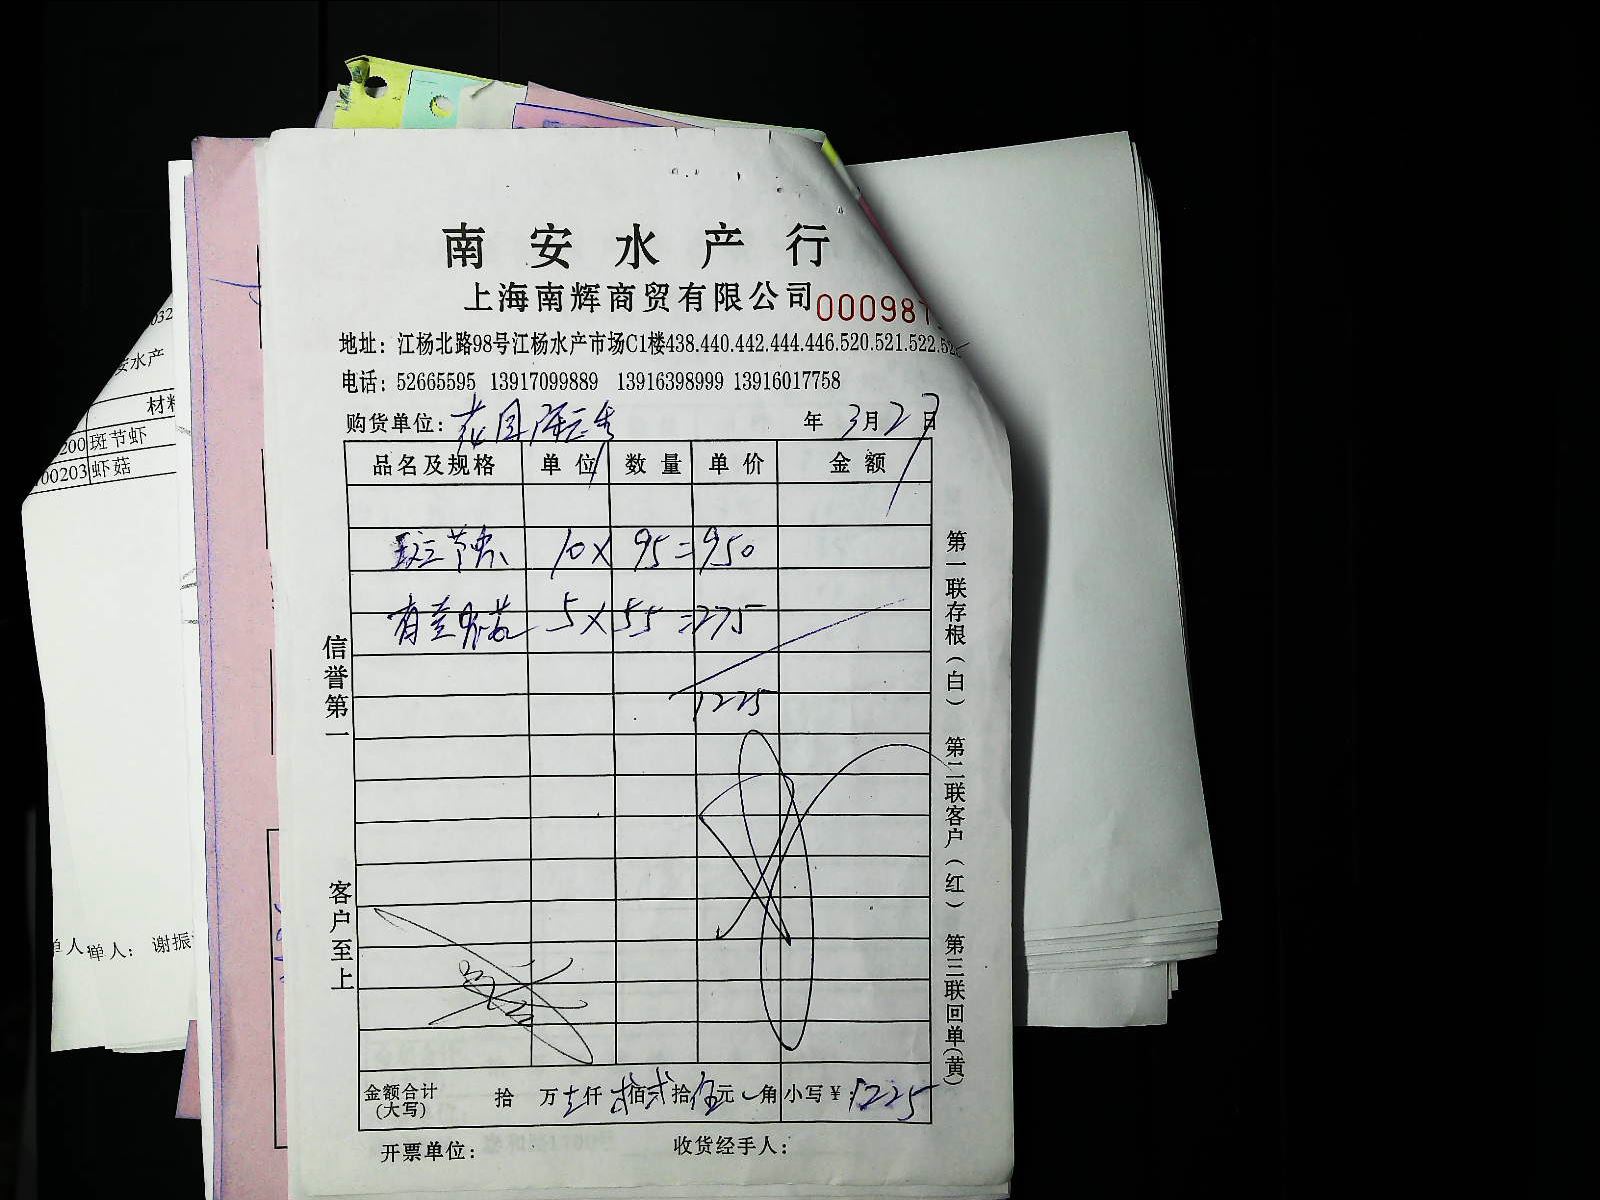 南安水产行
上海南辉商贸有限公司 000987
地址：江杨北路98号江杨水产市场C1楼438.440.442.444.446.520.521.522.52
电话：52665595 13917099889 13916398999 13916017758
购货单位：花园 年 3月27日
品名及规格 单位 数量 单价 金额
斑节虾 10× 95=950
有 虾菇 5×55=275
1225
信誉第一
客户至上
第一联存根（白） 第二联客户（红） 第三联回单（黄）
金额合计（大写） 拾 万 仟 贰佰贰拾伍元 角 小写￥：1225
开票单位： 收货经手人：
032
安水产
材料
200 斑节虾
00203 虾菇
单人 单人：谢振